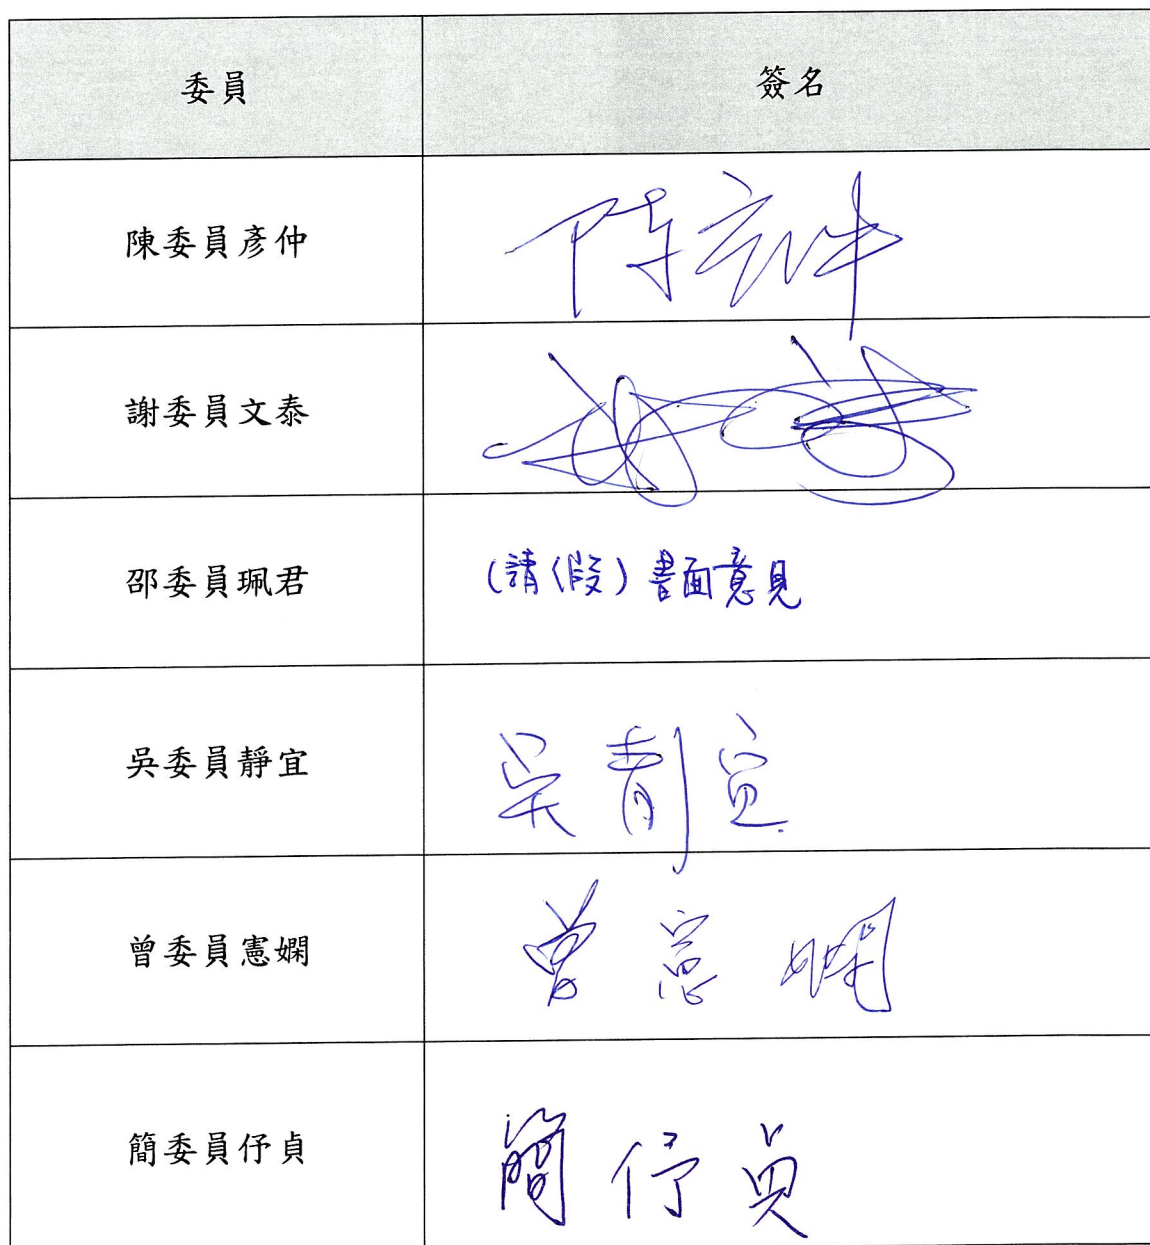 委員 簽名
陳委員彥仲 陳彥仲
謝委員文泰
邵委員珮君 (請假) 書面意見
吳委員靜宜 吳靜宜
曾委員憲嫻 曾憲嫻
簡委員伃貞 簡伃貞